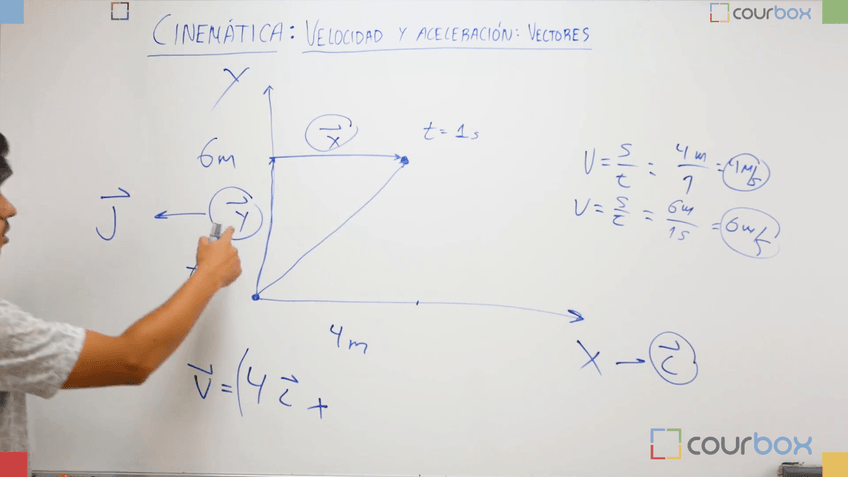 courbox
CINEMÁTICA: VELOCIDAD Y ACELERACIÓN: VECTORES
Y
x⃗
t = 1s
6m
V = s/t = 4m/1 = 4m/s
V = s/t = 6m/1s = 6m/s
j⃗ ← y⃗
4m
X → i⃗
v⃗ = (4 i⃗ +
courbox